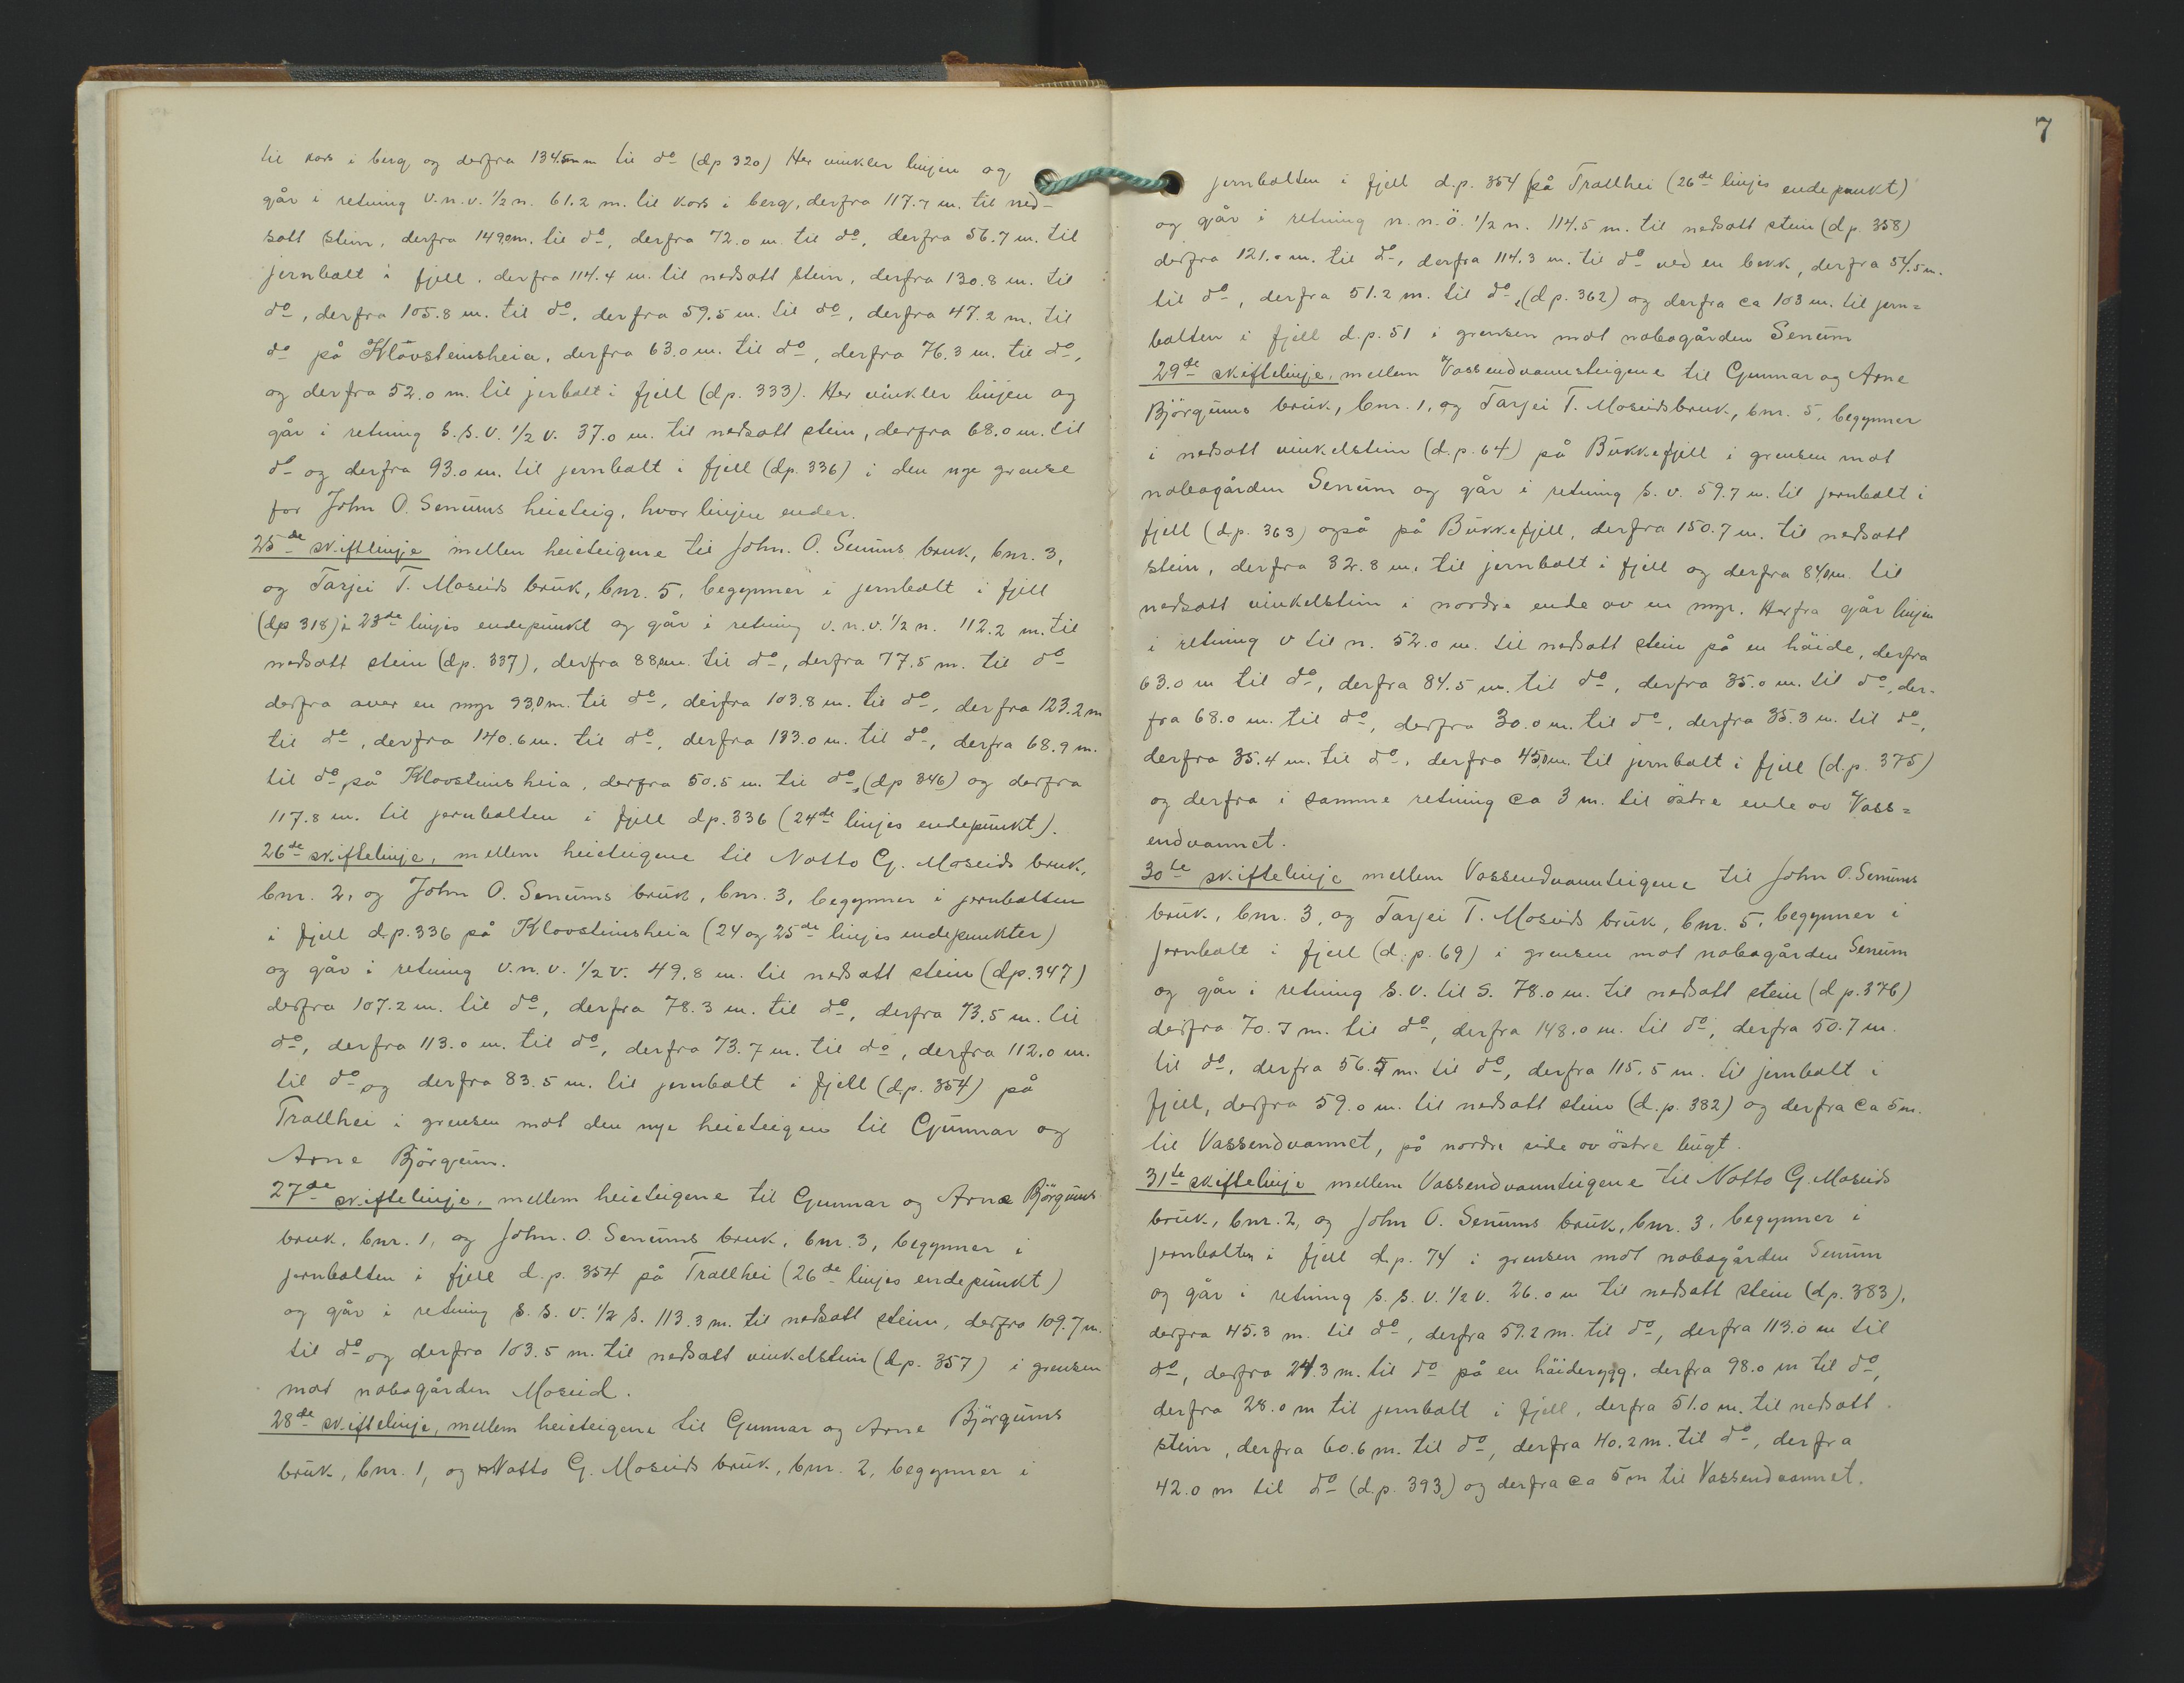 til kors i berg og derfra 134.5 m til do (dp 320) Her vinkler linjen og
går i retning v.n.v. 1/2 n. 61.2 m. til kors i berg, derfra 117.7 m. til ned-
satt stein, derfra 149.0 m. til do, derfra 72.0 m. til do, derfra 56.7 m. til
jernbolt i fjell, derfra 114.4 m. til nedsatt stein, derfra 130.8 m. til
do, derfra 105.8 m. til do, derfra 59.5 m. til do, derfra 47.2 m. til
do på Klövsteinsheia, derfra 63.0 m. til do, derfra 76.3 m. til do,
og derfra 52.0 m. til jerbolt i fjell (dp. 333). Her vinkler linjen og
går i retning s.s.v. 1/2 v. 37.0 m. til nedsatt stein, derfra 68.0 m. til
do og derfra 93.0 m. til jernbolt i fjell (dp. 336) i den nye grense
for John O. Senums heieteig, hvor linjen ender.
25de skiftlinje mellem heieteigene til John. O. Senums bruk, bnr. 3,
og Tarjei T. Moseids bruk, bnr. 5, begynner i jernbolt i fjell
(dp 318) i 23de linjes endepunkt og går i retning v.n.v. 1/2 n. 112.2 m. til
nedsatt stein (dp. 337), derfra 88.0 m. til do, derfra 77.5 m. til do
derfra over en myr 93.0 m. til do, derfra 103.8 m. til do, derfra 123.2 m
til do, derfra 140.6 m. til do, derfra 133.0 m. til do, derfra 68.9 m.
til do på Klovsteinsheia, derfra 50.5 m. til do, (dp 346) og derfra
117.8 m. til jernbolten i fjell dp. 336 (24de linjes endepunkt).
26de skiftelinje, mellem heieteigene til Notto G. Moseids bruk,
bnr. 2, og John O. Senums bruk, bnr. 3, begynner i jernbolten
i fjell d.p. 336 på Klovsteinsheia (24 og 25de linjes endepunkter)
og går i retning v.n.v. 1/2 v. 49.8 m. til nedsatt stein (dp. 347)
derfra 107.2 m. til do, derfra 78.3 m. til do, derfra 73.5 m. til
do, derfra 113.0 m. til do, derfra 73.7 m. til do, derfra 112.0 m.
til do og derfra 83.5 m. til jernbolt i fjell (d.p. 354) på
Trollhei i grensen mot den nye heieteigen til Gunnar og
Arne Björgum.
27de skiftelinje, mellem heieteigene til Gunnar og Arne Björgums
bruk, bnr. 1, og John. O. Senums bruk, bnr. 3, begynner i
jernbolten i fjell d.p. 354 på Trollhei (26de linjes endepunkt)
og går i retning s.s.v. 1/2 s. 113.3 m. til nedsatt stein, derfra 109.7 m.
til do og derfra 103.5 m. til nedsatt vinkelstein (d.p. 357) i grensen
mot nabogården Moseid.
28de skiftelinje, mellem heieteigene til Gunnar og Arne Björgums
bruk, bnr. 1, og Notto G. Moseids bruk, bnr. 2, begynner i
7
jernbolten i fjell d.p. 354 på Trollhei (26de linjes endepunkt)
og går i retning n.n.ö. 1/2 n. 114.5 m. til nedsatt stein (dp. 358)
derfra 121.0 m. til do, derfra 114.3 m. til do ved en bekk, derfra 54.5 m.
til do, derfra 51.2 m. til do, (dp. 362) og derfra ca 103 m. til jern=
bolten i fjell d.p. 51 i grensen mot nabogården Senum
29de skiftelinje, mellem Vassendvannsteigene til Gunnar og Arne
Björgums bruk, bnr. 1, og Tarjei T. Moseids bruk, bnr. 5, begynner
i nedsatt vinkelstein (d.p. 64) på Bukkefjell i grensen mot
nabogården Senum og går i retning s.v. 59.7 m. til jernbolt i
fjell (dp. 363) også på Bukkefjell, derfra 150.7 m. til nedsatt
stein, derfra 32.8 m. til jernbolt i fjell og derfra 84.0 m. til
nedsatt vinkelstein i nordre ende av en myr. Herfra går linjen
i retning v til n. 52.0 m. til nedsatt stein på en höide, derfra
63.0 m til do, derfra 84.5 m. til do, derfra 35.0 m. til do, der-
fra 68.0 m. til do, derfra 30.0 m. til do, derfra 35.3 m. til do,
derfra 35.4 m. til do, derfra 45.0 m. til jernbolt i fjell (d.p. 375)
og derfra i samme retning ca 3 m. til östre ende av Vass=
endvannet.
30te skiftelinje mellem Vassendvannteigene til John O. Senums
bruk, bnr. 3, og Tarjei T. Moseids bruk, bnr. 5, begynner i
jernbolt i fjell (d.p. 69) i grensen mot nabogården Senum
og går i retning s.v. til s. 78.0 m. til nedsatt stein (d p. 376)
derfra 70.7 m. til do, derfra 148.0 m. til do, derfra 50.7 m.
til do, derfra 56.5 m. til do, derfra 115.5 m. til jernbolt i
fjell, derfra 59.0 m. til nedsatt stein (d.p. 382) og derfra ca 5 m.
til Vassendvannet, på nordre side av östre bugt.
31te skiftelinje mellem Vassendvannteigene til Notto G. Moseids
bruk, bnr. 2, og John O. Senums bruk, bnr. 3, begynner i
jernbolten i fjell d.p. 74 i grensen mot nabogården Senum
og går i retning s.s.v. 1/2 v. 26.0 m til nedsatt stein (dp. 383),
derfra 45.3 m. til do, derfra 59.2 m. til do, derfra 113.0 m til
do, derfra 24.3 m. til do på en höiderygg, derfra 98.0 m til do,
derfra 28.0 m til jernbolt i fjell, derfra 51.0 m. til nedsatt
stein, derfra 60.6 m. til do, derfra 40.2 m. til do, derfra
42.0 m til do (d.p. 393) og derfra ca 5 m til Vassendvannet.